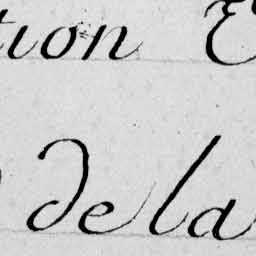 tion E
de la